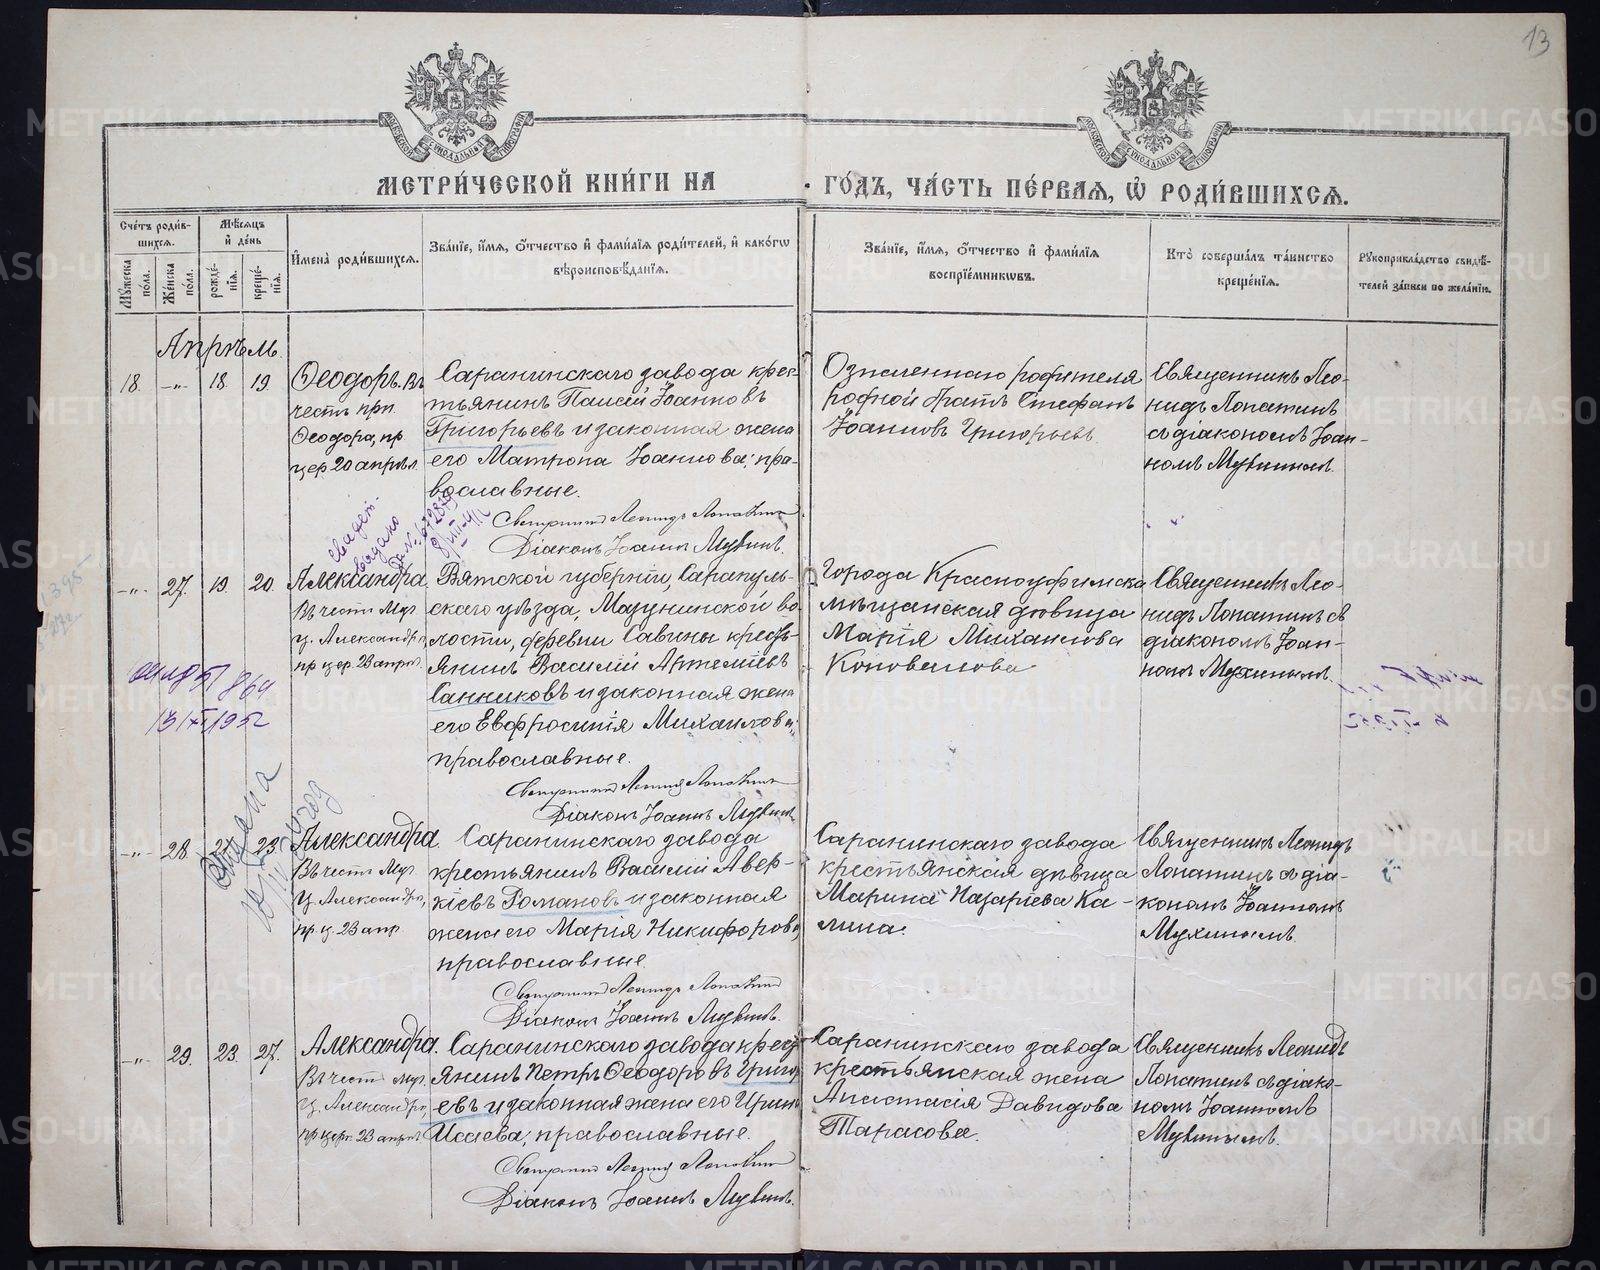 13
МОСКОВСКОЙ СѴНОДАЛЬНОЙ ТИПОГРАФІИ
МОСКОВСКОЙ СѴНОДАЛЬНОЙ ТИПОГРАФІИ
МЕТРИ́ЧЕСКОЙ КНИ́ГИ НА
ГО́ДЪ, ЧА́СТЬ ПЕ́РВАЯ, Ѡ҆ РОДИ́ВШИХСѦ.
Сче́тъ роди́в-
шихсѧ.
Мѣ́сѧцъ
и҆ де́нь
Му́жеска
по́ла.
Же́нска
по́ла.
рожде́-
нїѧ.
креще́-
нїѧ.
И҆мена̀ роди́вшихсѧ.
Зва́нїе, и҆́мѧ, ѻ҆́тчество и҆ фами́лїѧ роди́телей, и҆ како́гѡ
вѣроисповѣ́данїѧ.
Зва́нїе, и҆́мѧ, ѻ҆́тчество и҆ фами́лїѧ
воспрїе́мникѡвъ.
Кто̀ соверша́лъ та́инство
креще́нїѧ.
Рꙋкоприкла́дство свидѣ́-
телей за́писи по жела́нїю.
Апрѣль.
18. -„- 18. 19.
Ѳеодоръ. Въ
честь прп.
Ѳеодора, пр.
цер. 20 апрѣл.
Саранинскаго завода крес-
тьянинъ Паисій Іоанновъ
Григорьевъ и законная жена
его Матрона Іоаннова; пра-
вославные.
Священникъ Леонидъ Лопатинъ
Діаконъ Іоаннъ Мухинъ.
Означеннаго родителя
родной братъ Стефанъ
Іоанновъ Григорьевъ.
Священникъ Лео-
нидъ Лопатинъ
съ діакономъ Іоан-
номъ Мухинымъ.
свидет.
выдано
-„- 27. 19. 20.
Александра
Въ честь Муч.
Ц. Александры,
пр. цер. 23 апрѣл.
Вятской губерніи, Сарапуль-
скаго уѣзда, Мазунинской во-
лости, деревни Савины кресть-
янинъ Василій Артеміевъ
Санниковъ и законная жена
его Евфросинія Михаилова;
православные.
Священникъ Леонидъ Лопатинъ
Діаконъ Іоаннъ Мухинъ.
Города Красноуфимска
мѣщанская дѣвица
Марія Михаилова
Коновалова
Священникъ Лео-
нидъ Лопатинъ съ
діакономъ Іоан-
номъ Мухинымъ.
-„- 28. 23.
Александра.
Въ честь Муч.
Ц. Александры,
пр. ц. 23 апр.
Саранинскаго завода
крестьянинъ Василій Авер-
кіевъ Романовъ и законная
жена его Марія Никифорова,
православные.
Священникъ Леонидъ Лопатинъ
Діаконъ Іоаннъ Мухинъ.
Саранинскаго завода
крестьянская дѣвица
Марина Назаріева Ка-
лина.
Священникъ Леонидъ
Лопатинъ съ діа-
кономъ Іоанномъ
Мухинымъ.
-„- 29. 23. 27.
Александра.
Въ честь муч.
Ц. Александры,
пр. церк. 23 апрѣл.
Саранинскаго завода кресть-
янинъ Петръ Ѳеодоровъ Григор-
евъ и законная жена его Ирина
Исаева, православные.
Священникъ Леонидъ Лопатинъ
Діаконъ Іоаннъ Мухинъ.
Саранинскаго завода
крестьянская жена
Анастасія Давидова
Тарасова.
Священникъ Леонидъ
Лопатинъ съ діако-
номъ Іоанномъ
Мухинымъ.
METRIKI.GASO-URAL.RU